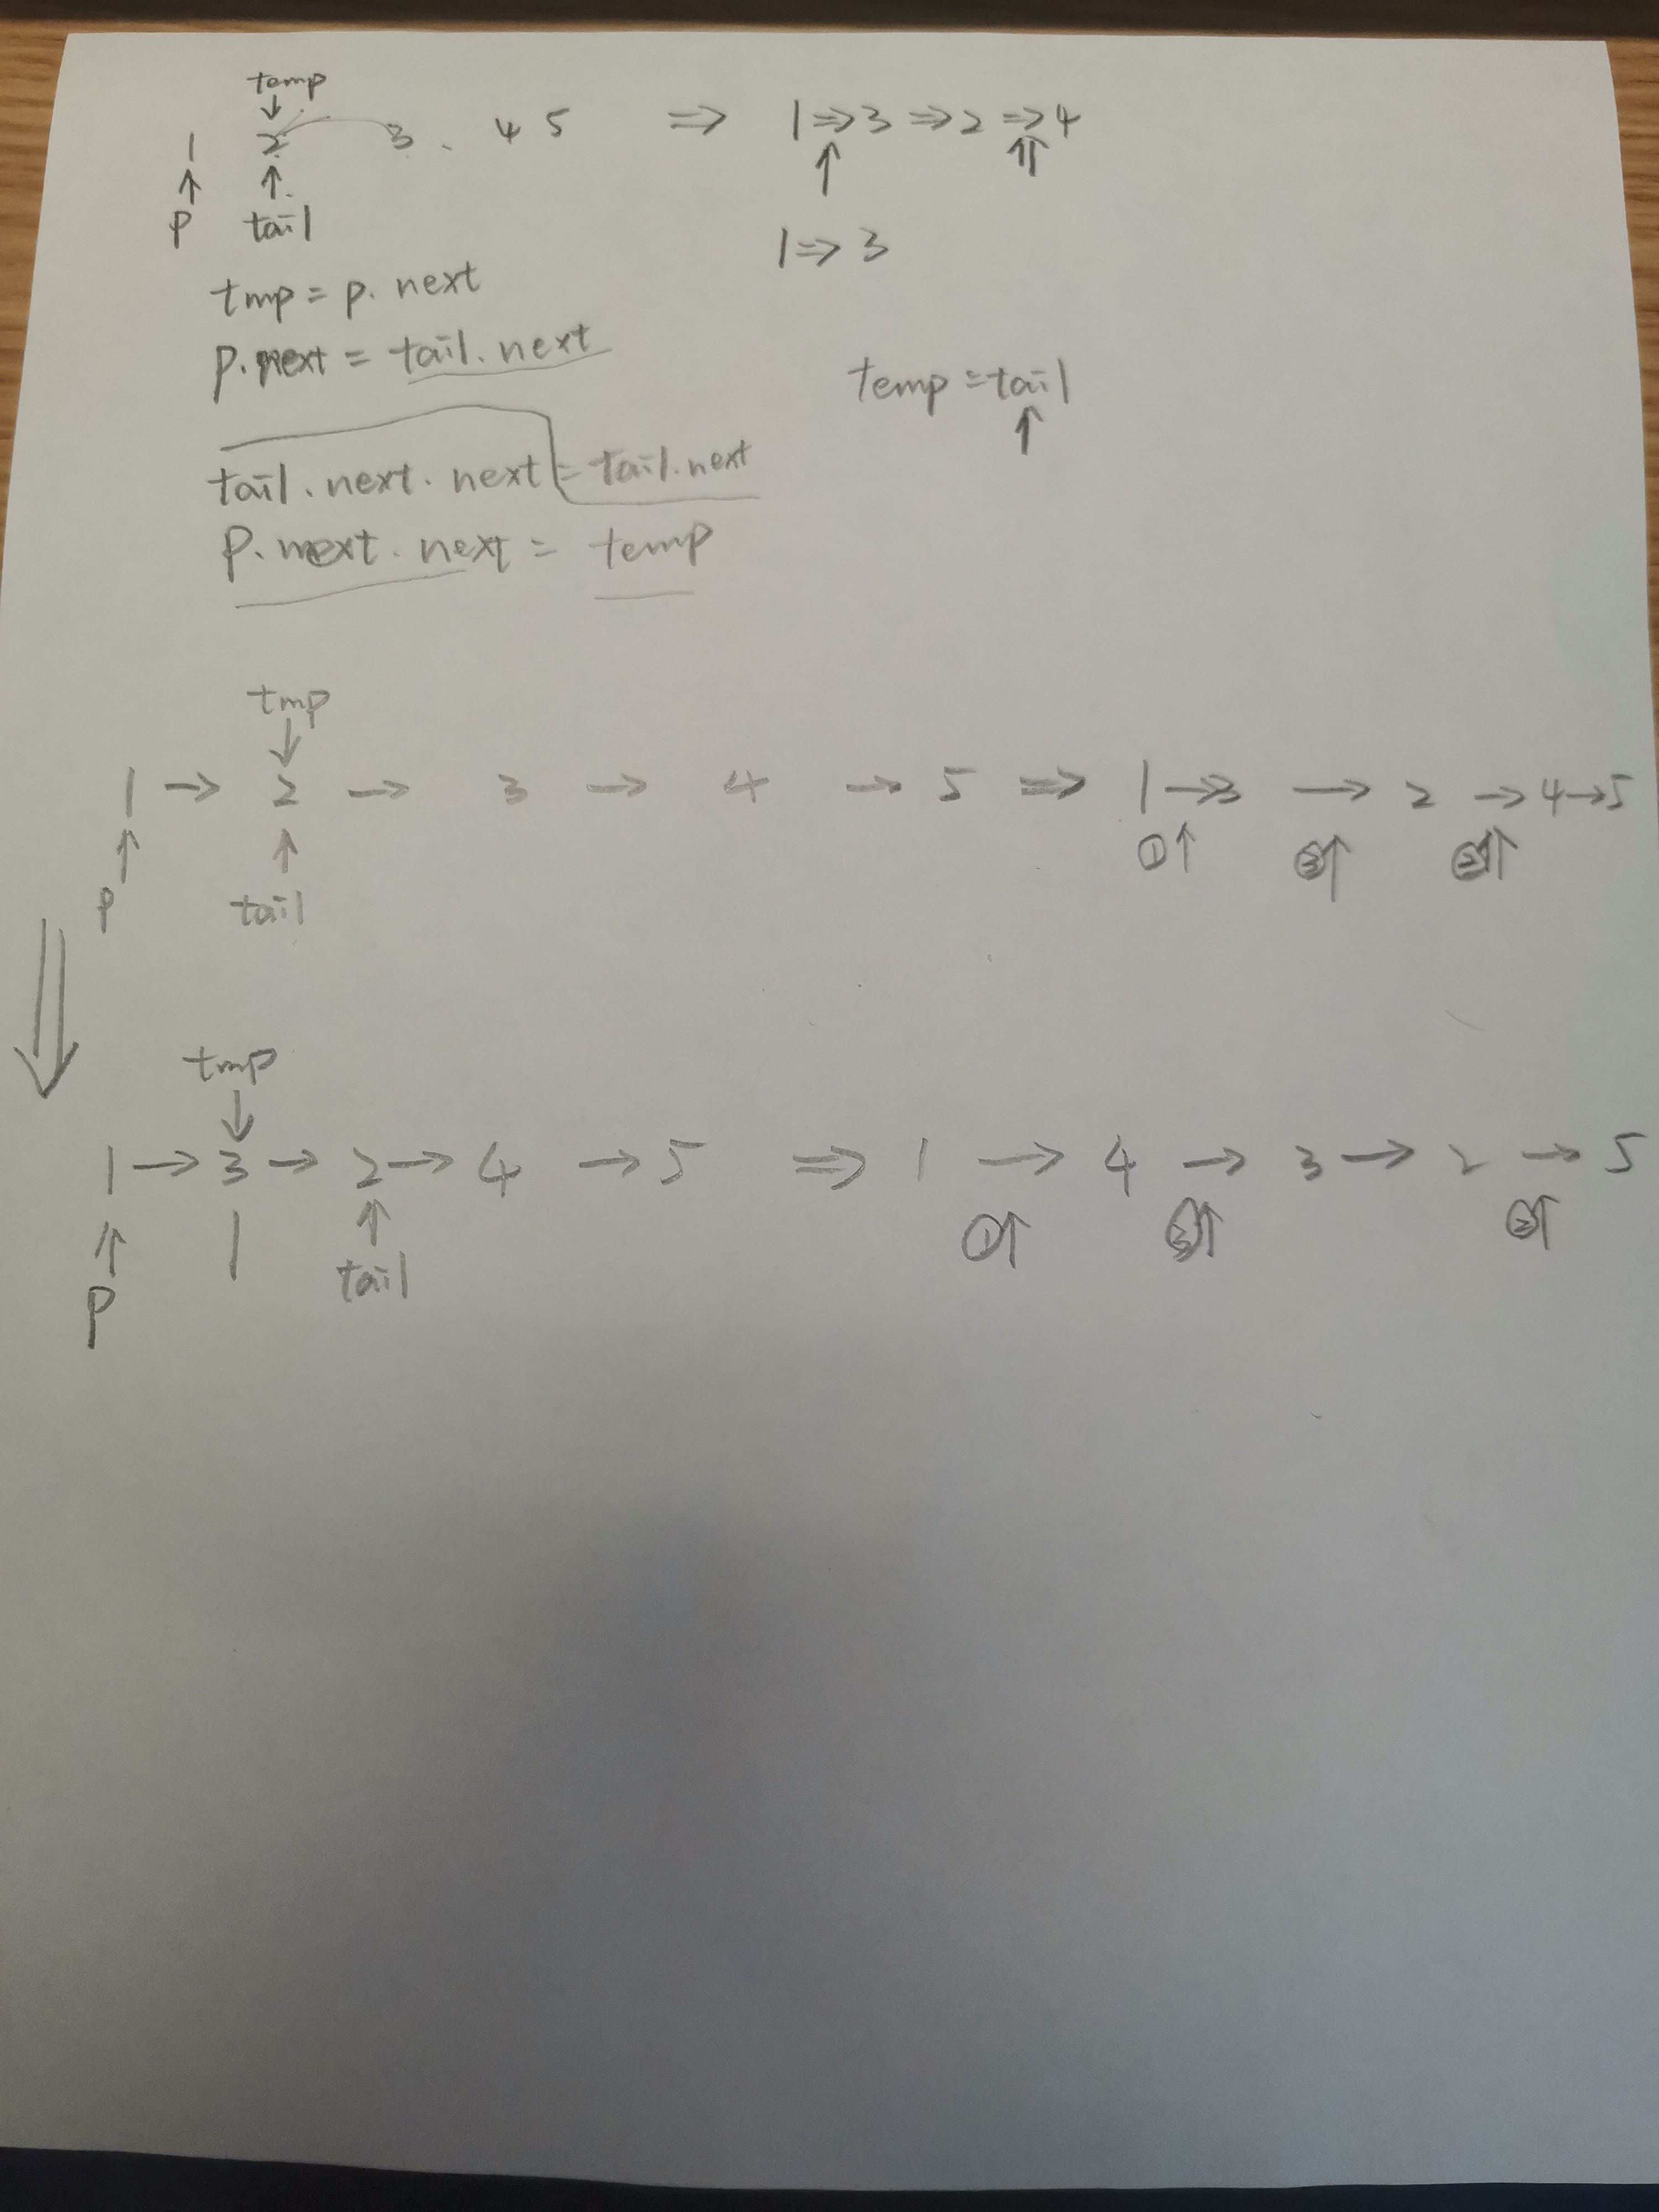 temp
↓
1 2 3 . 4 5 ⇒ 1⇒3⇒2⇒4
↑ ↑ ↑ ⇑
p tail
1⇒3
tmp = p. next
p.next = tail.next
temp = tail
↑
tail.next.next = tail.next
p.next.next = temp
tmp
↓
1 → 2 → 3 → 4 → 5 ⇒ 1 → 3 → 2 → 4 → 5
↑ ↑ ①↑ ③↑ ②↑
p tail
⇓
tmp
↓
1 → 3 → 2 → 4 → 5 ⇒ 1 → 4 → 3 → 2 → 5
⇑ | ↑ ①↑ ③↑ ②↑
p tail